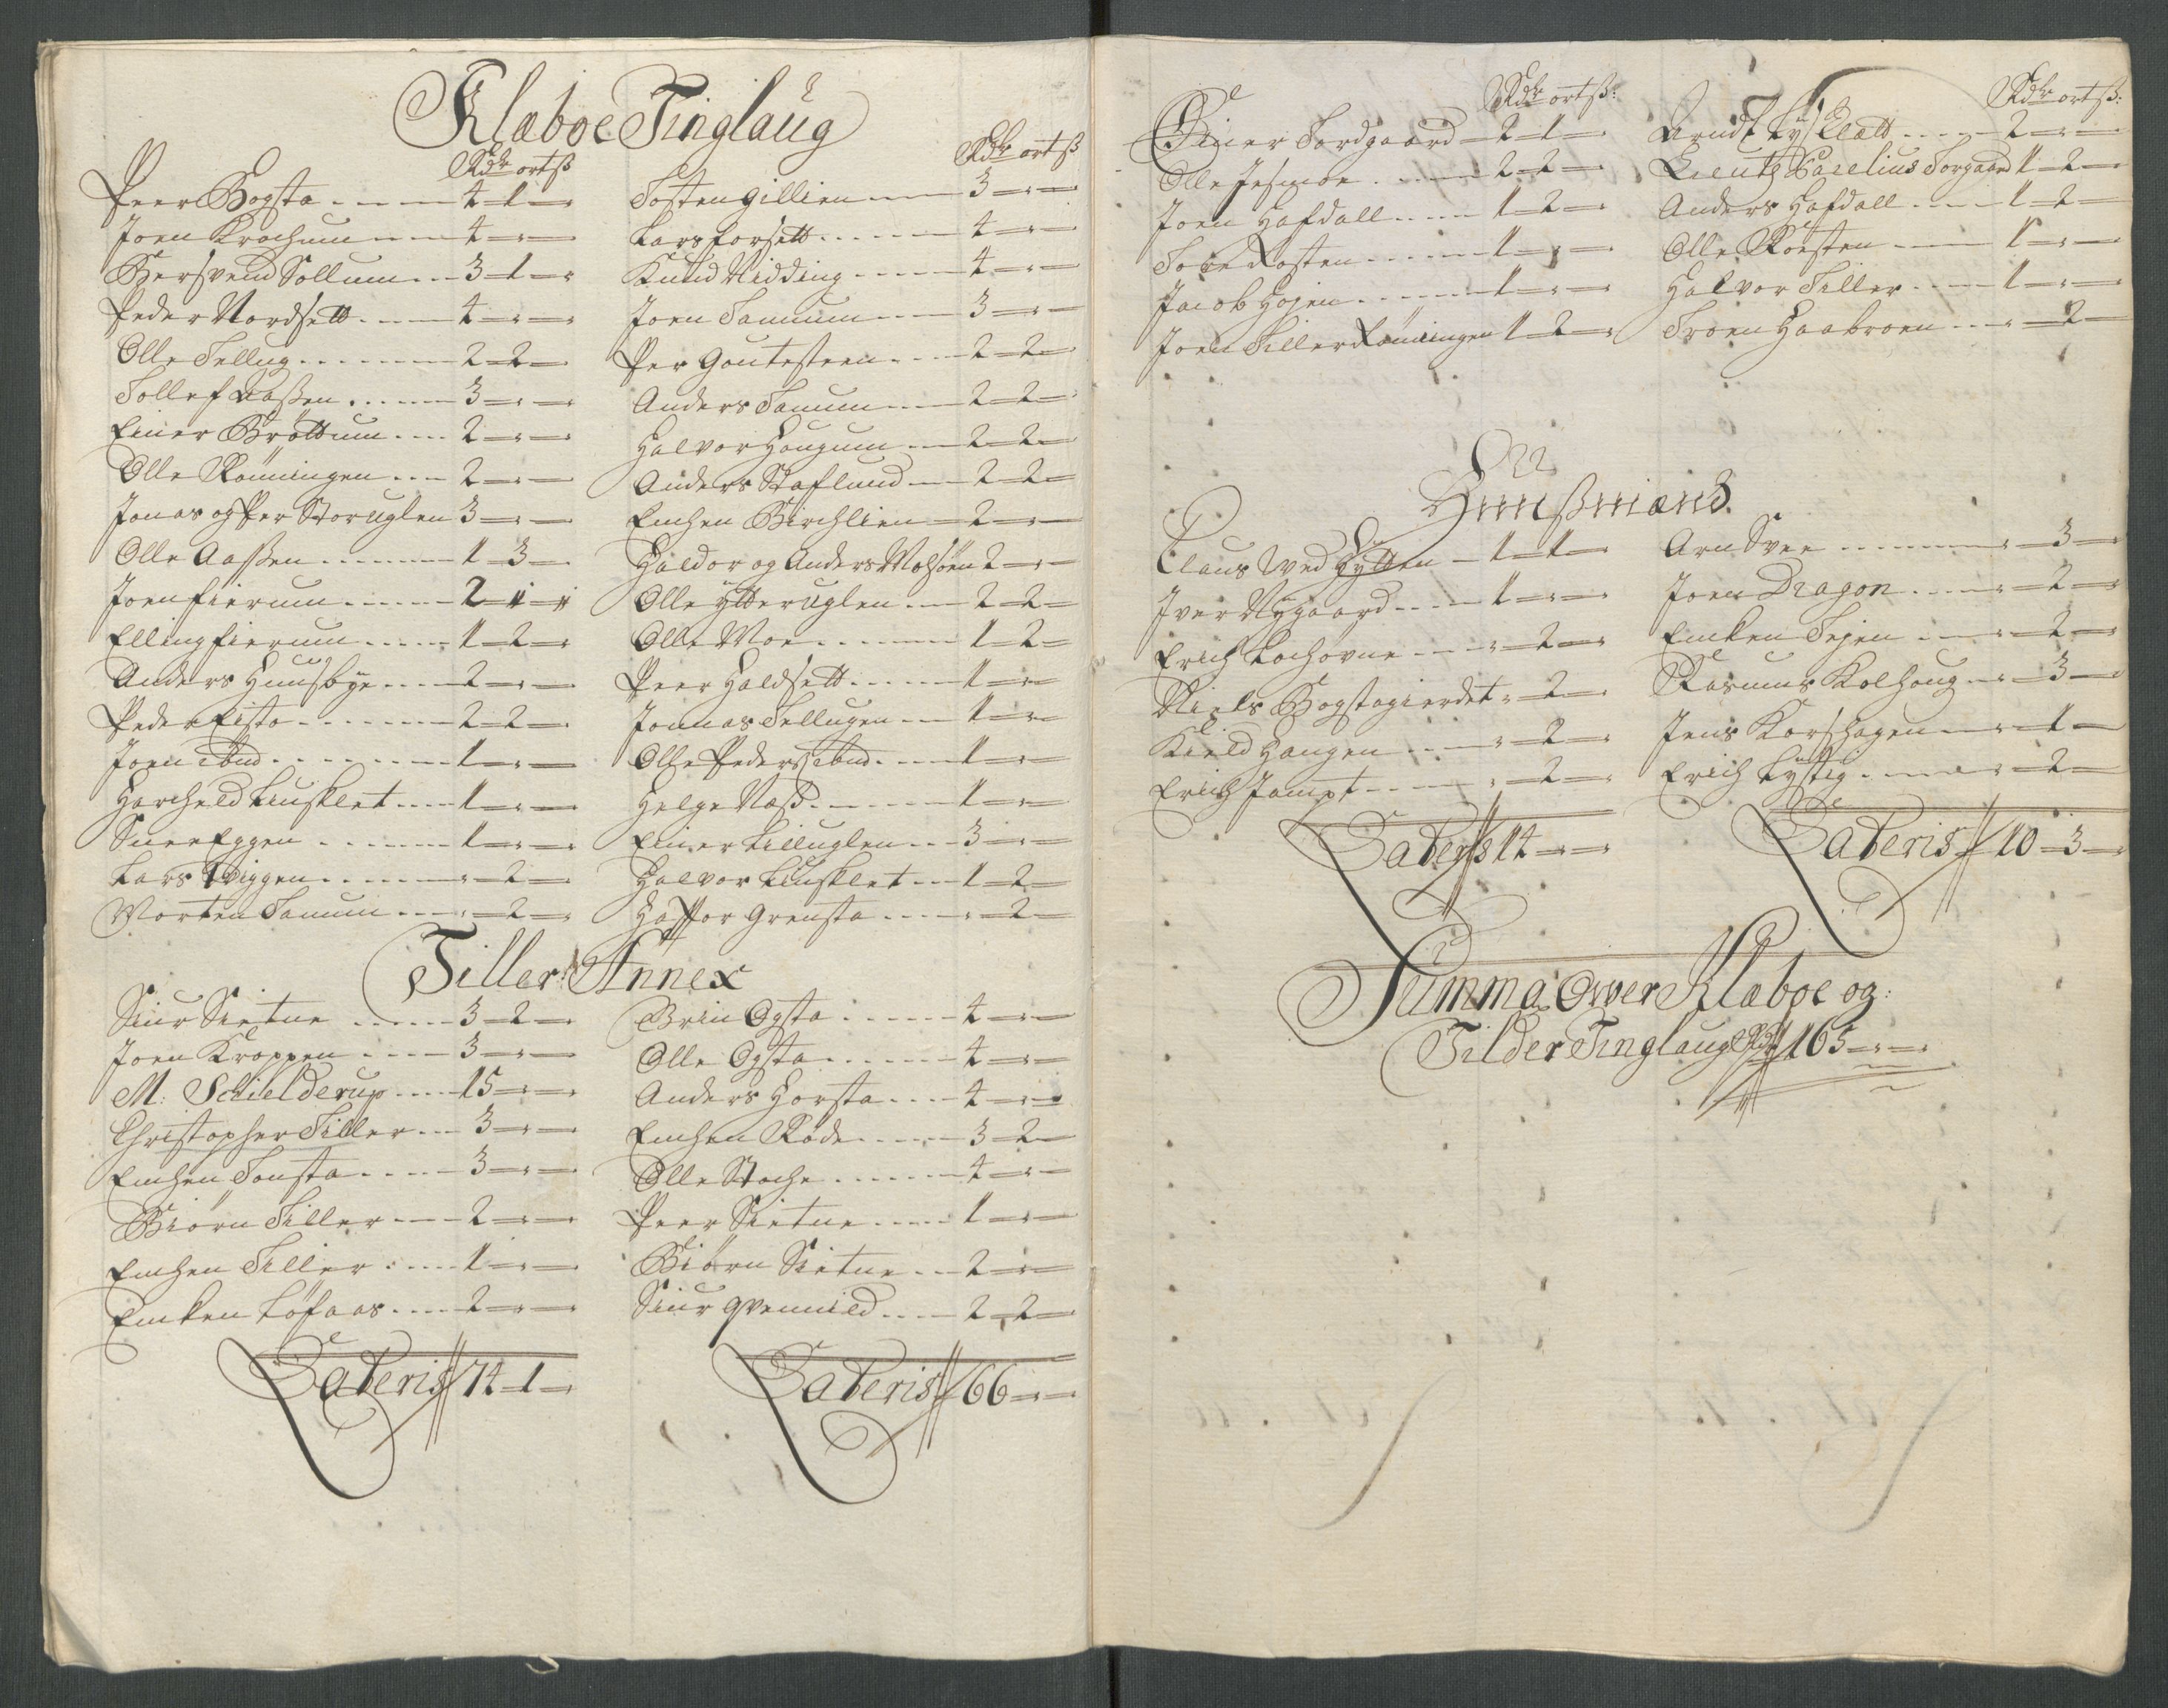 Klæboe Tinglaug
Rdr ort ß
Peer Bogsta 4 1
Joen Krochum 4
Bersvend Sollum 3 1
Peder Nordsett 4
Olle Tellug 2 2
Tollef Aaßen 3
Einer Brøttum 2
Olle Rønningen 2
Jonas og Per Storuglen 3
Olle Aaßen 1 3
Joen fierum 2
Elling fierum 1 2
Anders Huusbye 2
Peder Eista 2 2
Joen ibid 1
Harcheld Liusklet 1
Eggen 1
Lars Wiggen 2
Morten Tanum 2
Rdr ort ß
Tosten gillien 3
Lars forsett 4
Knud Nidding 4
Joen Tanum 3
Per Goutesteen 2 2
Anders Tanum 2 2
Halvor Haugum 2 2
Anders Staflund 2 2
Enchen Birchlien 2
Haldor og Anders Molsøen 2
Olle ytteruglen 2 2
Olle Moe 1 2
Peer Haldsett 1
Jonnas Tellugen 1
Olle Peders ibid 1
Helge Næss 1
Einer Lilluglen 3
Halvor Liusklet 1 2
Haffor Grensta 2
Tiller Annex
Siur Sietne 3 2
Joen Kroppen 3
M: Schielderup 15
Christopher Tiller 3
Enchen Tonsta 3
Biørn Tiller 2
Enchen Tiller 1
Encken Løfaas 2
Lateris 74 1
Brin Ogsta 4
Olle Ogsta 4
Anders Horsta 4
Enchen Røde 3 2
Olle Stoche 4
Peer Sietne 1
Biørn Sietne 2
Siur qvennild 2 2
Lateris 66
Rdr ort ß:
Einer Tordgaard 2 1
Olle Jesmoe 2 2
Joen Hafdall 1 2
Tore Røsten 1
Jacob Hojen 1
Joen Tiller Rønningen 1 2
Rdr ort ß:
Arndt Lysklætt 2
Lieutz Parelius Torgaard 1 2
Anders Hafdall 1 2
Olle Røesten 1
Halvor Tiller 1
Troen Haabroen 2
Huußmænd
Claus wed Hytten 1 1
Iver Nygaard 1
Erich Lochovne 2
Niels Bogstagierdet 2
Kield Haugen 2
Erich Jampt 2
Lateris 14
Arn Svee 3
Joen Dragon 2
Encken Tejen 2
Rasmus Kolhoug 3
Jens Korshagen 1
Erich Lÿstig 2
Lateris 10 3
Summa Ower Klæboe og
Tilder Tinglaug Rdr 165